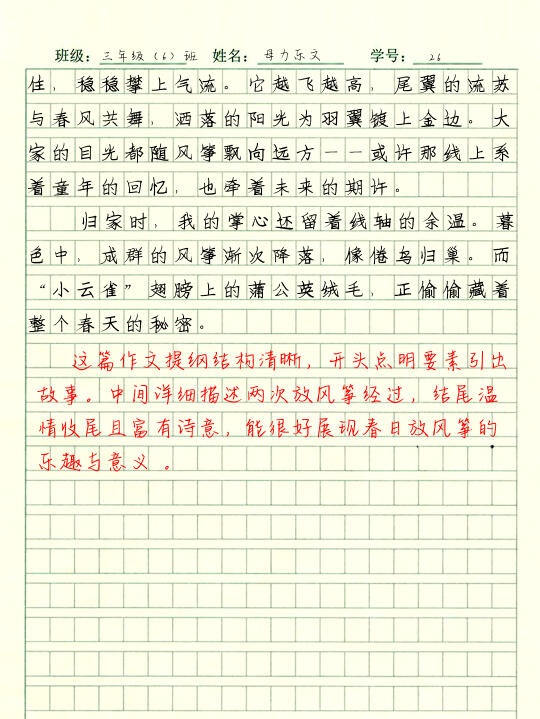 班级：三年级（6）班 姓名：母力乐文 学号：26
佳，稳稳攀上气流。它越飞越高，尾翼的流苏
与春风共舞，洒落的阳光为羽翼镀上金边。大
家的目光都随风筝飘向远方——或许那线上系
着童年的回忆，也牵着未来的期许。
归家时，我的掌心还留着线轴的余温。暮
色中，成群的风筝渐次降落，像倦鸟归巢。而
“小云雀”翅膀上的蒲公英绒毛，正偷偷藏着
整个春天的秘密。
这篇作文提纲结构清晰，开头点明要素引出
故事。中间详细描述两次放风筝经过，结尾温
情收尾且富有诗意，能很好展现春日放风筝的
乐趣与意义。